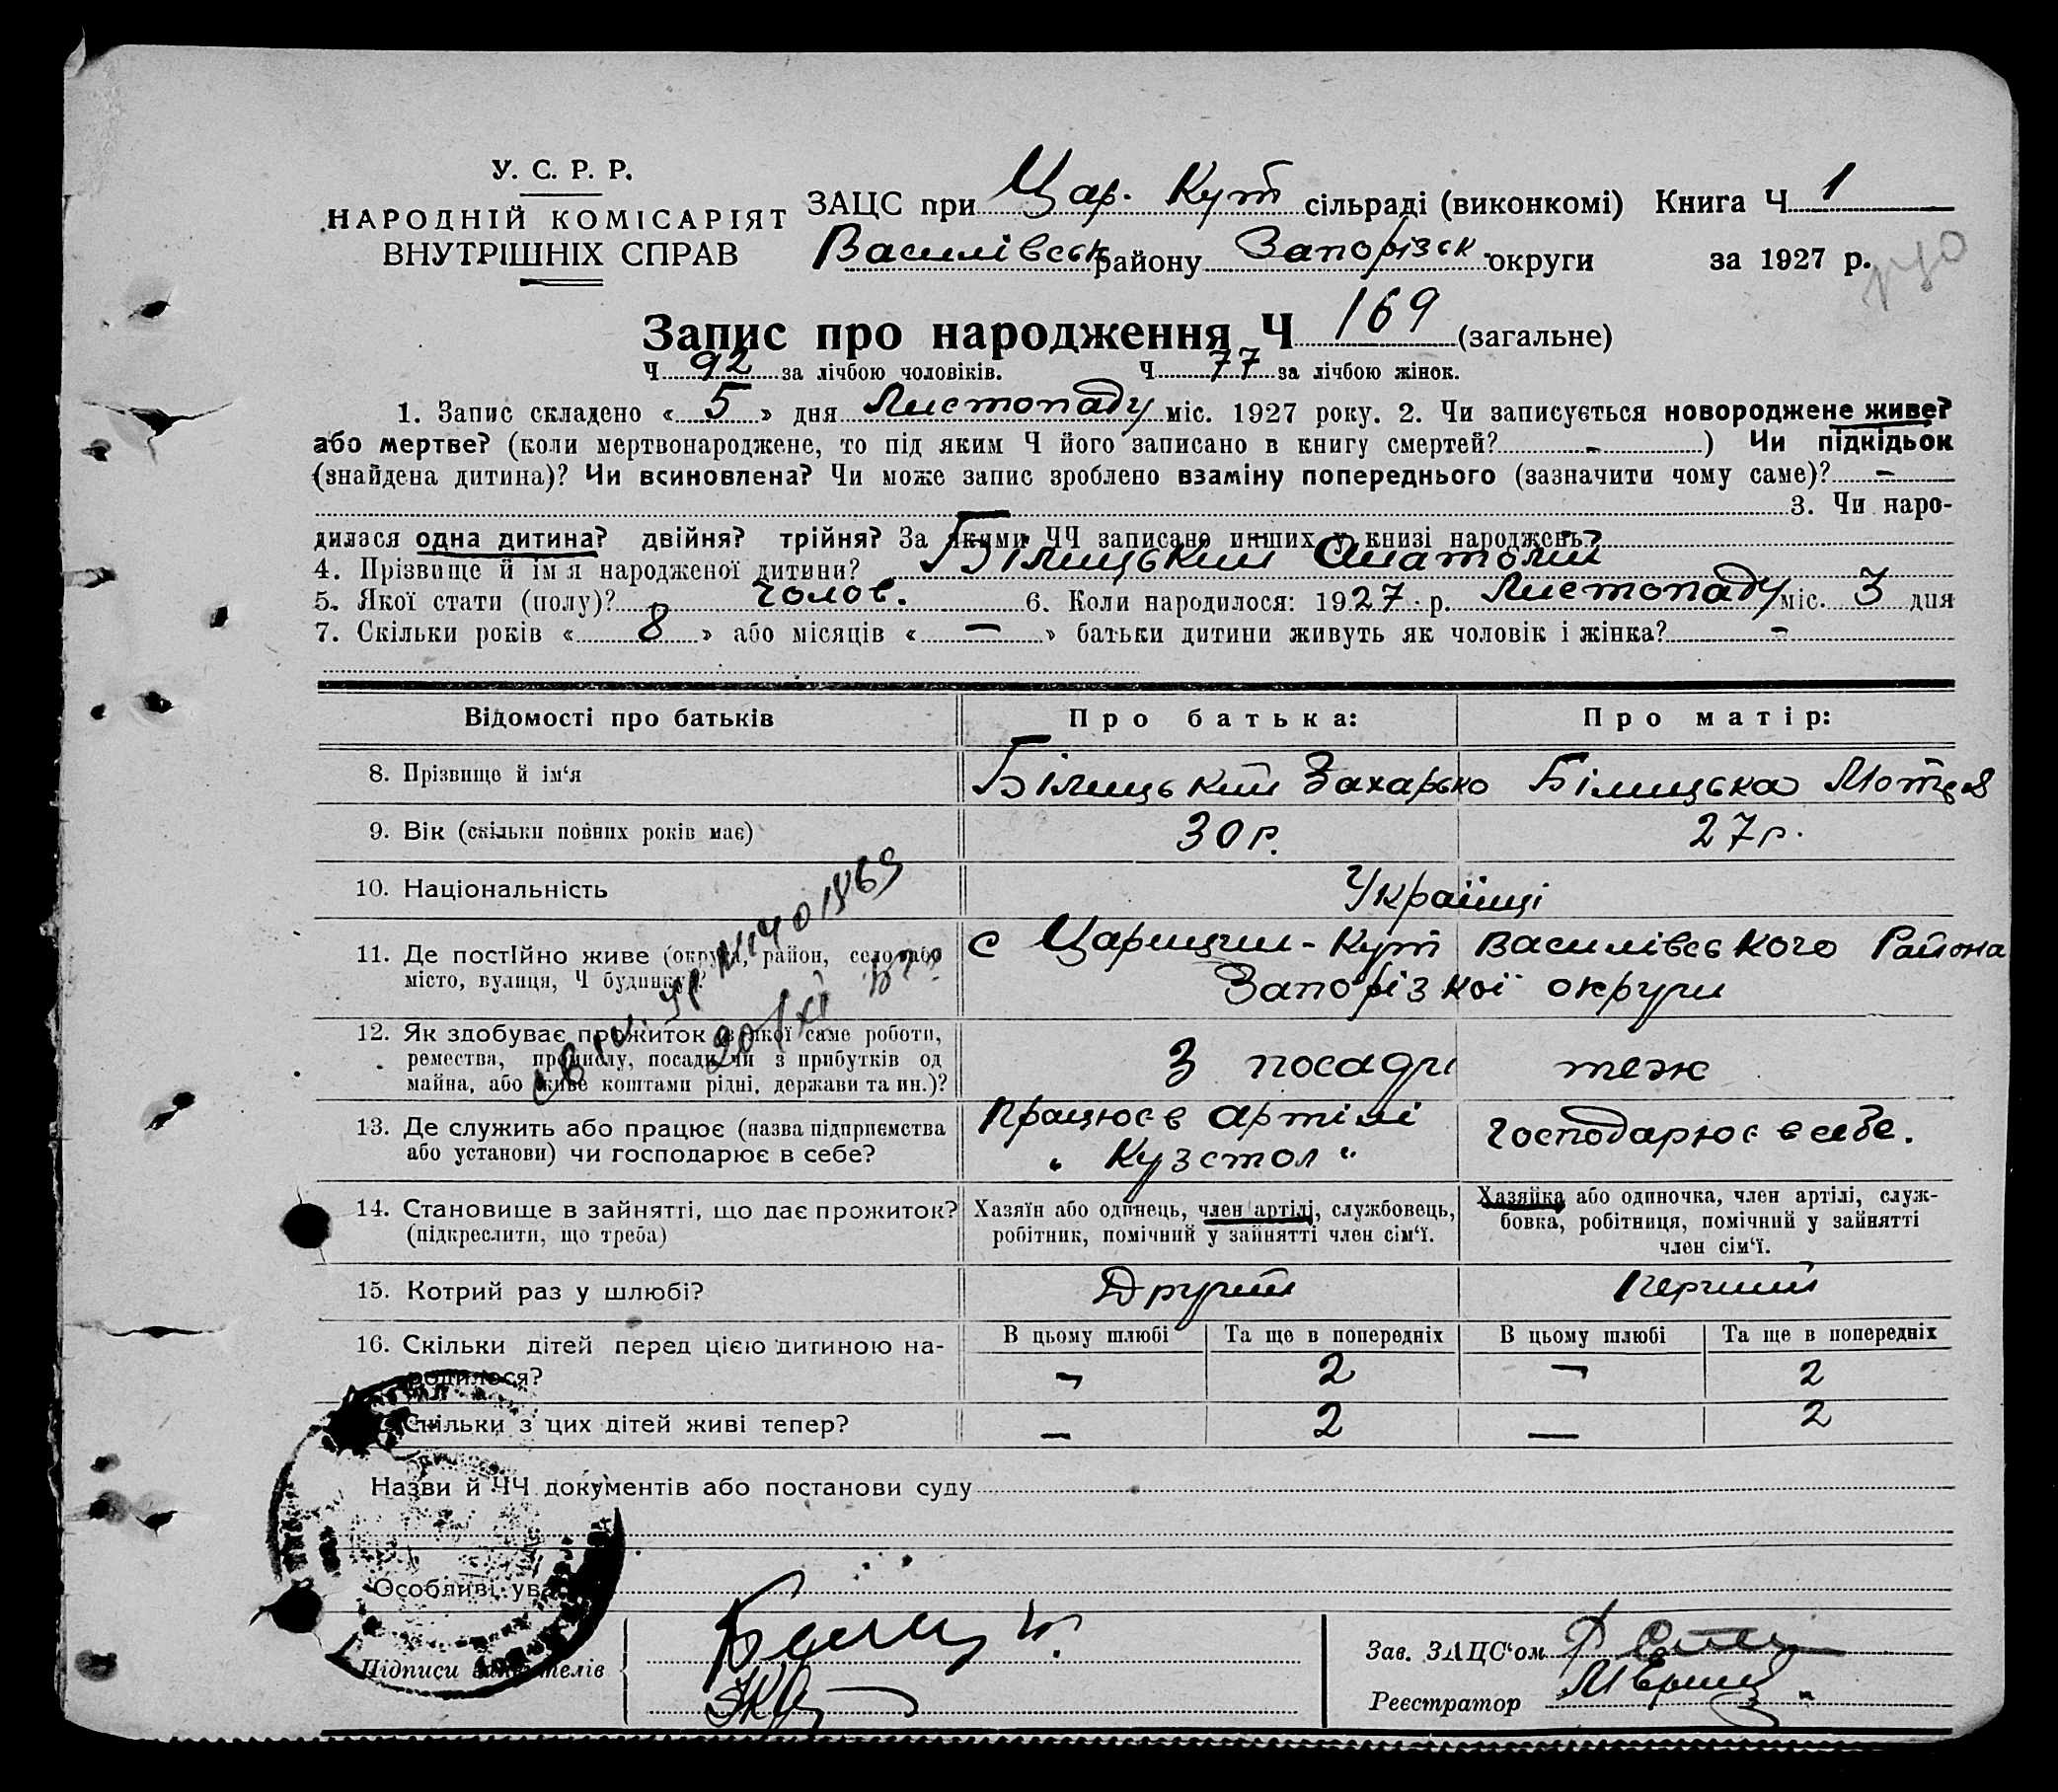 У. С. Р. Р.
НАРОДНІЙ КОМІСАРІЯТ
ВНУТРІШНІХ СПРАВ
ЗАЦС при Цар. Кут сільраді (виконкомі) Книга Ч 1
Василівськ району Запорізськ округи за 1927 р.
Запис про народження Ч 169 (загальне)
Ч 92 за лічбою чоловіків. Ч 77 за лічбою жінок.
1. Запис складено « 5 » дня Листопаду міс. 1927 року. 2. Чи записується новороджене живе?
або мертве? (коли мертвонароджене, то під яким Ч його записано в книгу смертей? - ) Чи підкідьок
(знайдена дитина)? Чи всиновлена? Чи може запис зроблено взаміну попереднього (зазначити чому саме)? -
3. Чи наро-
дилася одна дитина? двійня? трійня? За якими ЧЧ записано инших у книзі народжень?
4. Прізвище й ім'я народженої дитини? Білицький Анатолій
5. Якої стати (полу)? Чолов. 6. Коли народилося: 1927 р. Листопаду міс. 3 дня
7. Скільки років « 8 » або місяців « — » батьки дитини живуть як чоловік і жінка? -
Відомості про батьків Про батька: Про матір:
8. Прізвище й ім'я Білицький Захарько Білицька Мотря
9. Вік (скільки повних років має) 30 р. 27 р.
10. Національність Українці
11. Де постійно живе (округа, район, село або с Царицин-Кут Василівського Района
місто, вулиця, Ч будинку)? Запорізкої округи
12. Як здобуває прожиток з якої саме роботи,
ремества, промислу, посади чи з прибутків од З посади теж
майна, або живе коштами рідні, держави та ин.)?
13. Де служить або працює (назва підприємства Працює в артілі Господарює в себе.
або установи) чи господарює в себе? „ Кузстол "
14. Становище в зайнятті, що дає прожиток? Хазяїн або одинець, член артілі, службовець, Хазяйка або одиночка, член артілі, служ-
(підкреслити, що треба) робітник, помічний у зайнятті член сім'ї. бовка, робітниця, помічний у зайнятті
член сім'ї.
15. Котрий раз у шлюбі? Другий Перший
16. Скільки дітей перед цією дитиною на- В цьому шлюбі Та ще в попередніх В цьому шлюбі Та ще в попередніх
родилося? — 2 — 2
Скільки з цих дітей живі тепер? — 2 — 2
Назви й ЧЧ документів або постанови суду
Особливі ува
Підписи
Зав. ЗАЦС'ом
Реєстратор